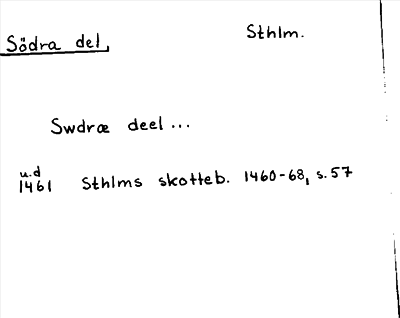 Södra del, Sthlm.
Swdræ deel...
u.d
1461 Sthlms skotteb. 1460-68, s.57